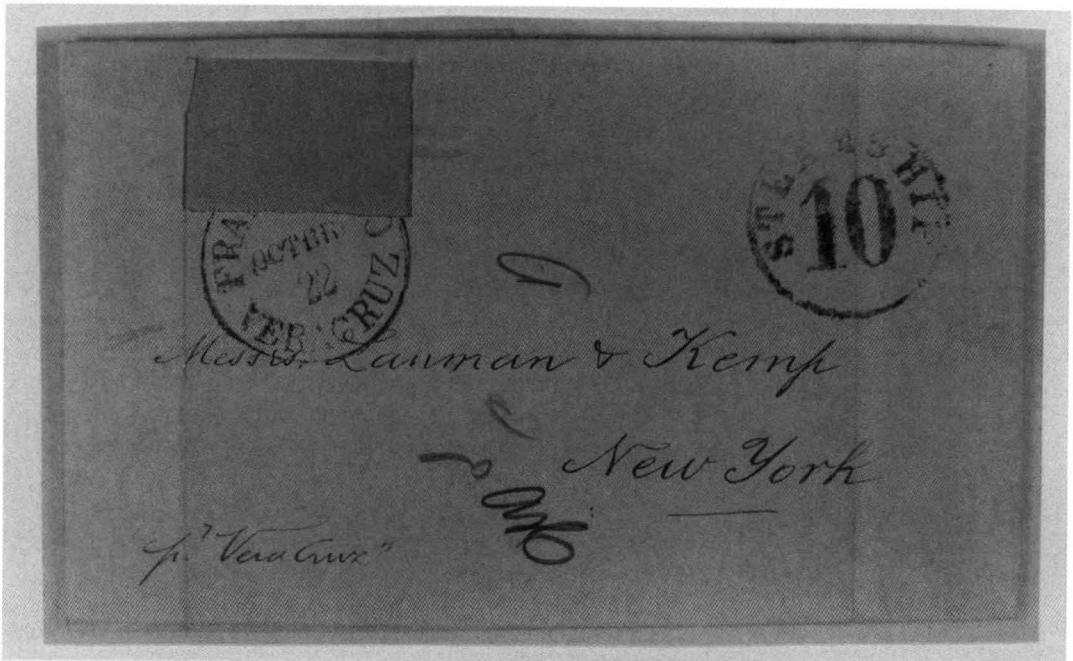 FRA
OCTBRE
22
VERACRUZ
STEAMSHIP
10
Messrs. Lanman & Kemp
New York
pr "Vera Cruz"